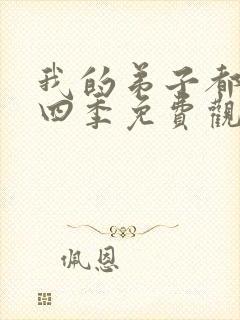 我的弟子都
四季免費觀
佩恩